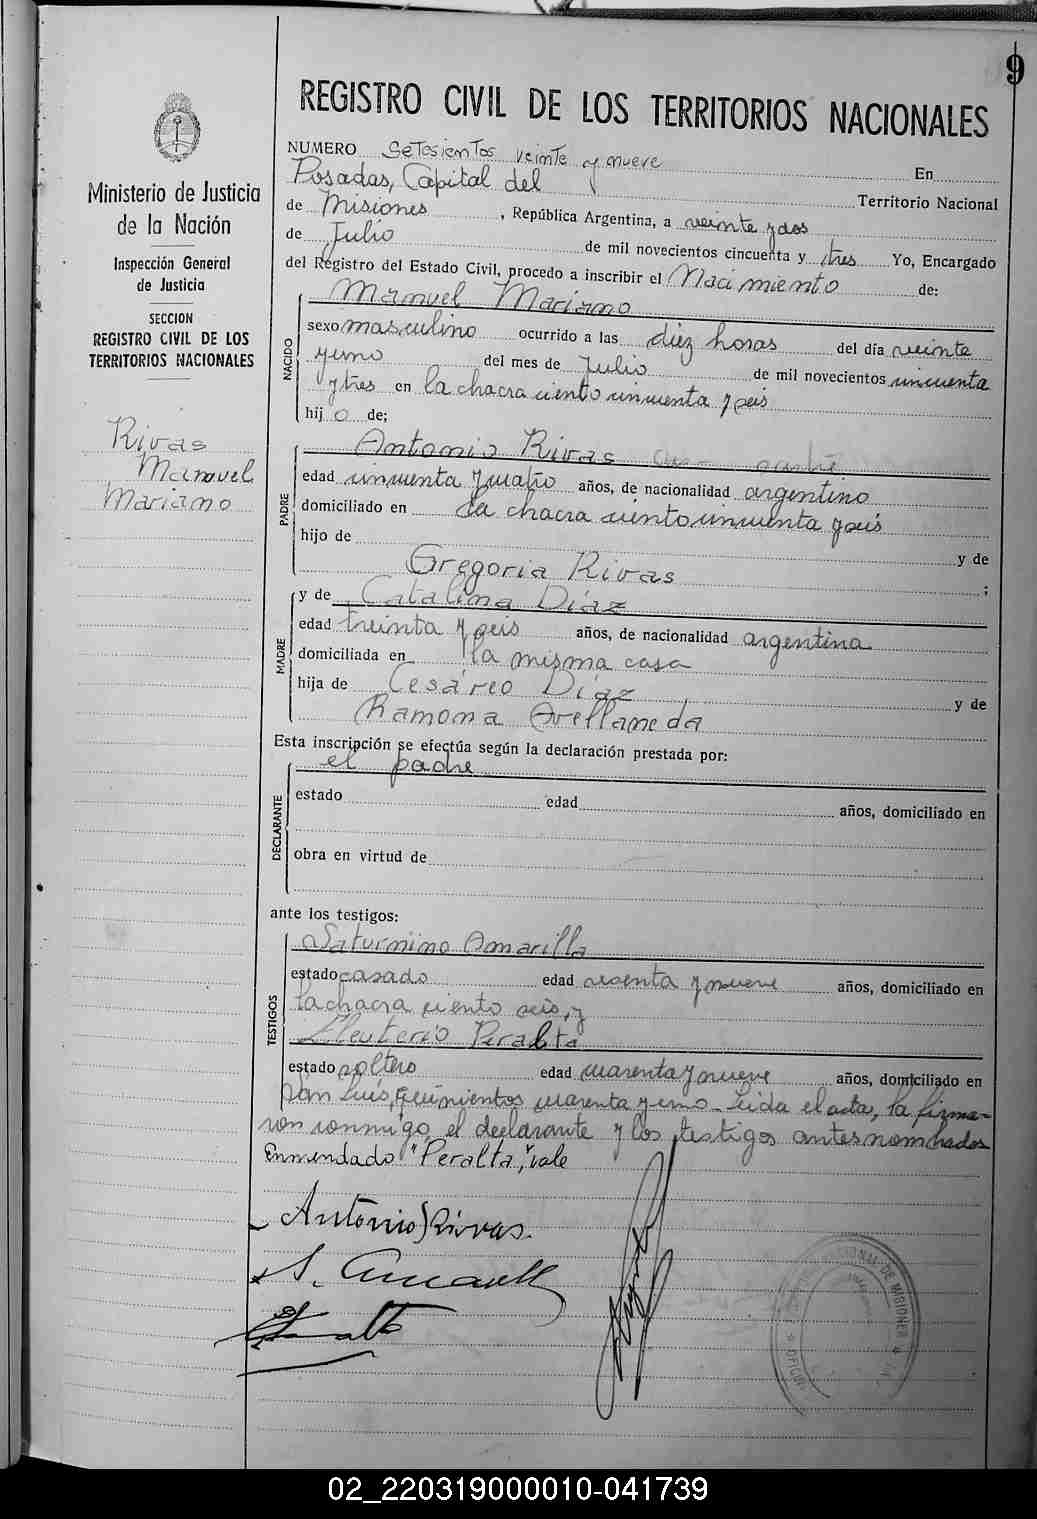 9
REGISTRO CIVIL DE LOS TERRITORIOS NACIONALES
Ministerio de Justicia
de la Nación
Inspección General
de Justicia
SECCION
REGISTRO CIVIL DE LOS
TERRITORIOS NACIONALES
Rivas
Manuel
Mariano
NUMERO Setesientos veinte y nueve En
Posadas, Capital del Territorio Nacional
de Misiones, República Argentina, a veinte y dos
de Julio de mil novecientos cincuenta y tres Yo, Encargado
del Registro del Estado Civil, procedo a inscribir el Nacimiento de:
NACIDO
Manuel Mariano
sexo masculino ocurrido a las diez horas del día veinte
y uno del mes de Julio de mil novecientos cincuenta
y tres en la chacra ciento cincuenta y seis
hij o de;
PADRE
Antonio Rivas
edad cincuenta y cuatro años, de nacionalidad argentino
domiciliado en la chacra ciento cincuenta y seis
hijo de y de
Gregoria Rivas ;
MADRE
y de Catalina Díaz
edad treinta y seis años, de nacionalidad argentina
domiciliada en la misma casa
hija de Cesáreo Díaz y de
Ramona Avellaneda
Esta inscripción se efectúa según la declaración prestada por:
DECLARANTE
el padre
estado edad años, domiciliado en
obra en virtud de
ante los testigos:
TESTIGOS
Saturnino Amarilla
estado casado edad sesenta y nueve años, domiciliado en
la chacra ciento seis, y
Eleuterio Peralta
estado soltero edad cuarenta y nueve años, domiciliado en
San Luis, quinientos cuarenta y uno - Leida el acta, la firma-
ron conmigo, el declarante y los testigos antes nombrados
Enmendado "Peralta", vale
Antonio Rivas.
S. Amarill
NACIONAL DE MISIONES
02_220319000010-041739